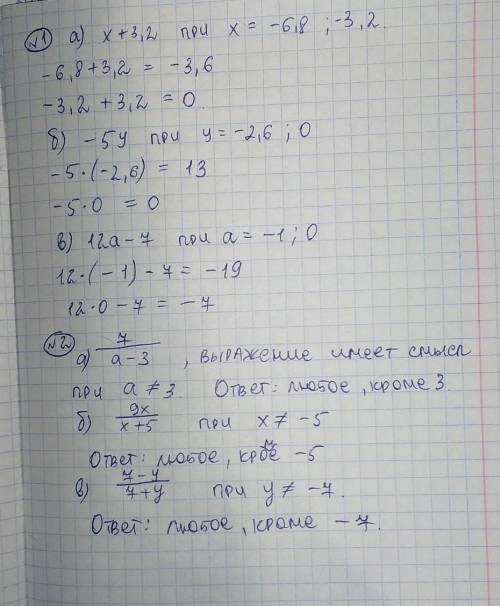 №1 а) x+3,2 при x = -6,8 ; -3,2.
-6,8+3,2 = -3,6
-3,2 + 3,2 = 0.
б) -5y при y = -2,6 ; 0
-5·(-2,6) = 13
-5·0 = 0
в) 12a-7 при a = -1 ; 0
12·(-1) - 7 = -19
12·0 - 7 = -7
№2
а) 7/(a-3) , выражение имеет смысл
при a ≠ 3. Ответ: любое, кроме 3.
б) 9x/(x+5) при x ≠ -5
Ответ: любое, кроме -5
в) (7-y)/(7+y) при y ≠ -7.
Ответ: любое, кроме -7.